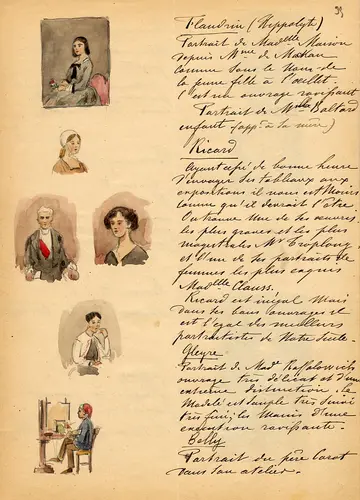 39
Flandrin (Hippolyte)
Portrait de Mad.elle Maison
depuis Mme de Mackau
connue sous le Nom de
la jeune fille à l'œillet.
C'est un ouvrage ravissant
Portrait de Melle Baltard
enfant (app.t à la mère)
Ricard
Ayant cessé de bonne heure
d'envoyer des tableaux aux
expositions il nous est Moins
connu qu'il devrait l'être.
On trouve Une de ses œuvres
les plus graves et les plus
magistrales Mr Troplong
et d'Un de ses portraits de
femmes les plus exquis
Mad.elle Clauss.
Ricard est inégal Mais
dans ses bons Ouvrages il
est l'égal des meilleurs
portraitistes de Notre Siècle
Gleyre
Portrait de Made Raffalowich
ouvrage très délicat et d'une
extrême distinction. le
Modelé est simple très suivi
très fin; les Mains d'une
exécution ravissante.
Belly
Portrait du père Corot
dans son atelier.